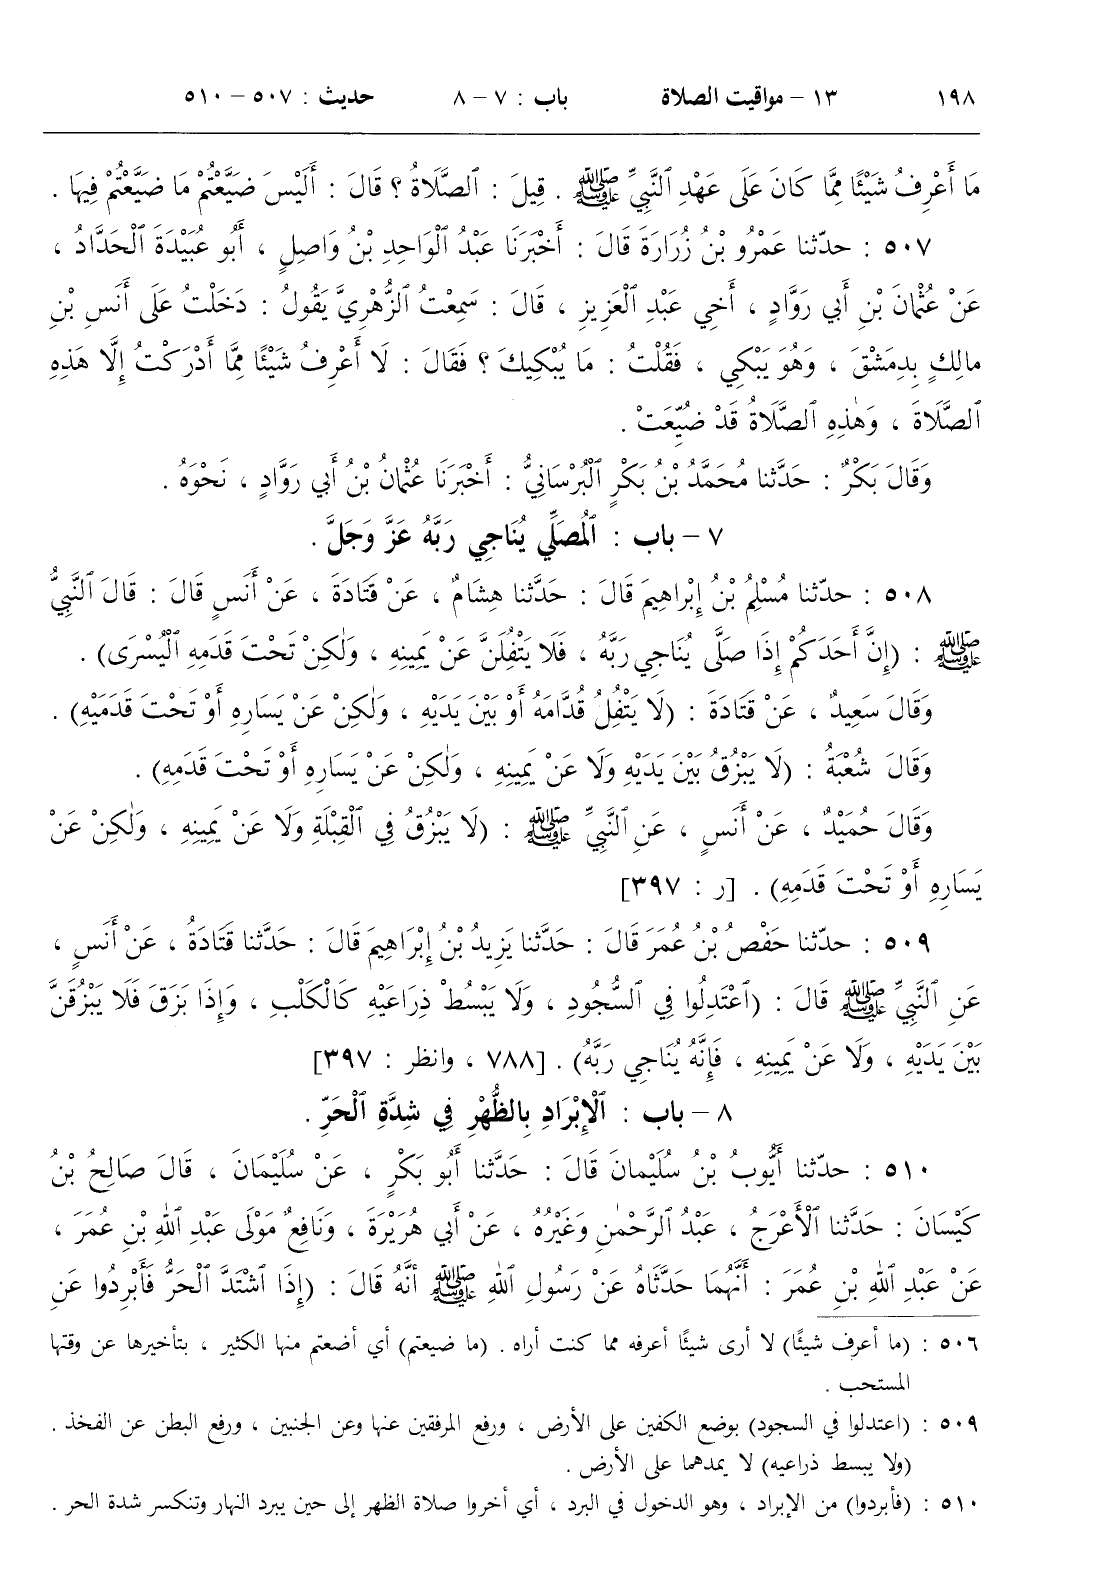 ١٩٨ ١٣ – مواقيت الصلاة باب : ٧ – ٨ حديث : ٥٠٧ – ٥١٠
مَا أَعْرِفُ شَيْئًا مِمَّا كَانَ عَلَى عَهْدِ ٱلنَّبِيِّ ﷺ . قِيلَ : ٱلصَّلَاةُ ؟ قَالَ : أَلَيْسَ ضَيَّعْتُمْ مَا ضَيَّعْتُمْ فِيهَا .
٥٠٧ : حدّثنا عَمْرُو بْنُ زُرَارَةَ قَالَ : أَخْبَرَنَا عَبْدُ ٱلْوَاحِدِ بْنُ وَاصِلٍ ، أَبُو عُبَيْدَةَ ٱلْحَدَّادُ ،
عَنْ عُثْمَانَ بْنِ أَبِي رَوَّادٍ ، أَخِي عَبْدِ ٱلْعَزِيزِ ، قَالَ : سَمِعْتُ ٱلزُّهْرِيَّ يَقُولُ : دَخَلْتُ عَلَى أَنَسِ بْنِ
مالِكٍ بِدِمَشْقَ ، وَهُوَ يَبْكِي ، فَقُلْتُ : مَا يُبْكِيكَ ؟ فَقَالَ : لَا أَعْرِفُ شَيْئًا مِمَّا أَدْرَكْتُ إِلَّا هَذِهِ
ٱلصَّلَاةَ ، وَهٰذِهِ ٱلصَّلَاةُ قَدْ ضُيِّعَتْ .
وَقَالَ بَكْرٌ : حَدَّثنا مُحَمَّدُ بْنُ بَكْرٍ ٱلْبُرْسَانِيُّ : أَخْبَرَنَا عُثْمانُ بْنُ أَبِي رَوَّادٍ ، نَحْوَهُ .
٧ – باب : ٱلْمُصَلِّي يُنَاجِي رَبَّهُ عَزَّ وَجَلَّ .
٥٠٨ : حدّثنا مُسْلِمُ بْنُ إِبْراهِيمَ قَالَ : حَدَّثنا هِشَامٌ ، عَنْ قَتَادَةَ ، عَنْ أَنَسٍ قَالَ : قَالَ ٱلنَّبِيُّ
ﷺ : (إِنَّ أَحَدَكُمْ إِذَا صَلَّى يُنَاجِي رَبَّهُ ، فَلَا يَتْفُلَنَّ عَنْ يَمِينِهِ ، وَلٰكِنْ تَحْتَ قَدَمِهِ ٱلْيُسْرَى) .
وَقَالَ سَعِيدٌ ، عَنْ قَتَادَةَ : (لَا يَتْفُلُ قُدَّامَهُ أَوْ بَيْنَ يَدَيْهِ ، وَلٰكِنْ عَنْ يَسَارِهِ أَوْ تَحْتَ قَدَمَيْهِ) .
وَقَالَ شُعْبَةُ : (لَا يَبْزُقُ بَيْنَ يَدَيْهِ وَلَا عَنْ يَمِينِهِ ، وَلٰكِنْ عَنْ يَسَارِهِ أَوْ تَحْتَ قَدَمِهِ) .
وَقَالَ حُمَيْدٌ ، عَنْ أَنَسٍ ، عَنِ ٱلنَّبِيِّ ﷺ : (لَا يَبْزُقُ فِي ٱلْقِبْلَةِ وَلَا عَنْ يَمِينِهِ ، وَلٰكِنْ عَنْ
يَسَارِهِ أَوْ تَحْتَ قَدَمِهِ) . [ر : ٣٩٧]
٥٠٩ : حدّثنا حَفْصُ بْنُ عُمَرَ قَالَ : حَدَّثنا يَزِيدُ بْنُ إِبْرَاهِيمَ قَالَ : حَدَّثنا قَتَادَةُ ، عَنْ أَنَسٍ ،
عَنِ ٱلنَّبِيِّ ﷺ قَالَ : (ٱعْتَدِلُوا فِي ٱلسُّجُودِ ، وَلَا يَبْسُطْ ذِرَاعَيْهِ كَالْكَلْبِ ، وَإِذَا بَزَقَ فَلَا يَبْزُقَنَّ
بَيْنَ يَدَيْهِ ، وَلَا عَنْ يَمِينِهِ ، فَإِنَّهُ يُنَاجِي رَبَّهُ) . [٧٨٨ ، وانظر : ٣٩٧]
٨ – باب : ٱلْإِبْرَادِ بِالظُّهْرِ فِي شِدَّةِ ٱلْحَرِّ .
٥١٠ : حدّثنا أَيُّوبُ بْنُ سُلَيْمانَ قَالَ : حَدَّثنا أَبُو بَكْرٍ ، عَنْ سُلَيْمَانَ ، قَالَ صَالِحُ بْنُ
كَيْسَانَ : حَدَّثنا ٱلْأَعْرَجُ ، عَبْدُ ٱلرَّحْمٰنِ وَغَيْرُهُ ، عَنْ أَبِي هُرَيْرَةَ ، وَنَافِعٌ مَوْلَى عَبْدِ ٱللهِ بْنِ عُمَرَ ،
عَنْ عَبْدِ ٱللهِ بْنِ عُمَرَ : أَنَّهُمَا حَدَّثَاهُ عَنْ رَسُولِ ٱللهِ ﷺ أَنَّهُ قَالَ : (إِذَا ٱشْتَدَّ ٱلْحَرُّ فَأَبْرِدُوا عَنِ
٥٠٦ : (ما أعرف شيئًا) لا أرى شيئًا أعرفه مما كنت أراه . (ما ضيعتم) أي أضعتم منها الكثير ، بتأخيرها عن وقتها
المستحب .
٥٠٩ : (اعتدلوا في السجود) بوضع الكفين على الأرض ، ورفع المرفقين عنها وعن الجنبين ، ورفع البطن عن الفخذ .
(ولا يبسط ذراعيه) لا يمدهما على الأرض .
٥١٠ : (فأبردوا) من الإبراد ، وهو الدخول في البرد ، أي أخروا صلاة الظهر إلى حين يبرد النهار وتنكسر شدة الحر .